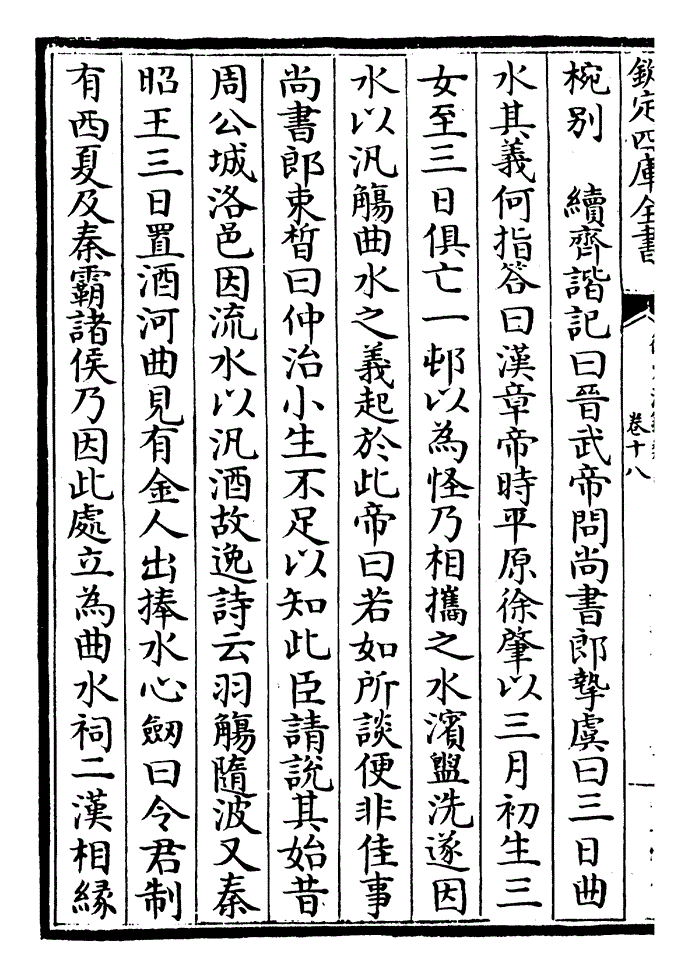 欽定四庫全書
卷十八
椀别　續齊諧記曰晉武帝問尚書郎摯虞曰三日曲
水其義何指答曰漢章帝時平原徐肇以三月初生三
女至三日俱亡一邨以為怪乃相攜之水濱盥洗遂因
水以汎觴曲水之義起於此帝曰若如所談便非佳事
尚書郎束皙曰仲治小生不足以知此臣請說其始昔
周公城洛邑因流水以汎酒故逸詩云羽觴隨波又秦
昭王三日置酒河曲見有金人出捧水心劔曰令君制
有西夏及秦霸諸侯乃因此處立為曲水祠二漢相緣